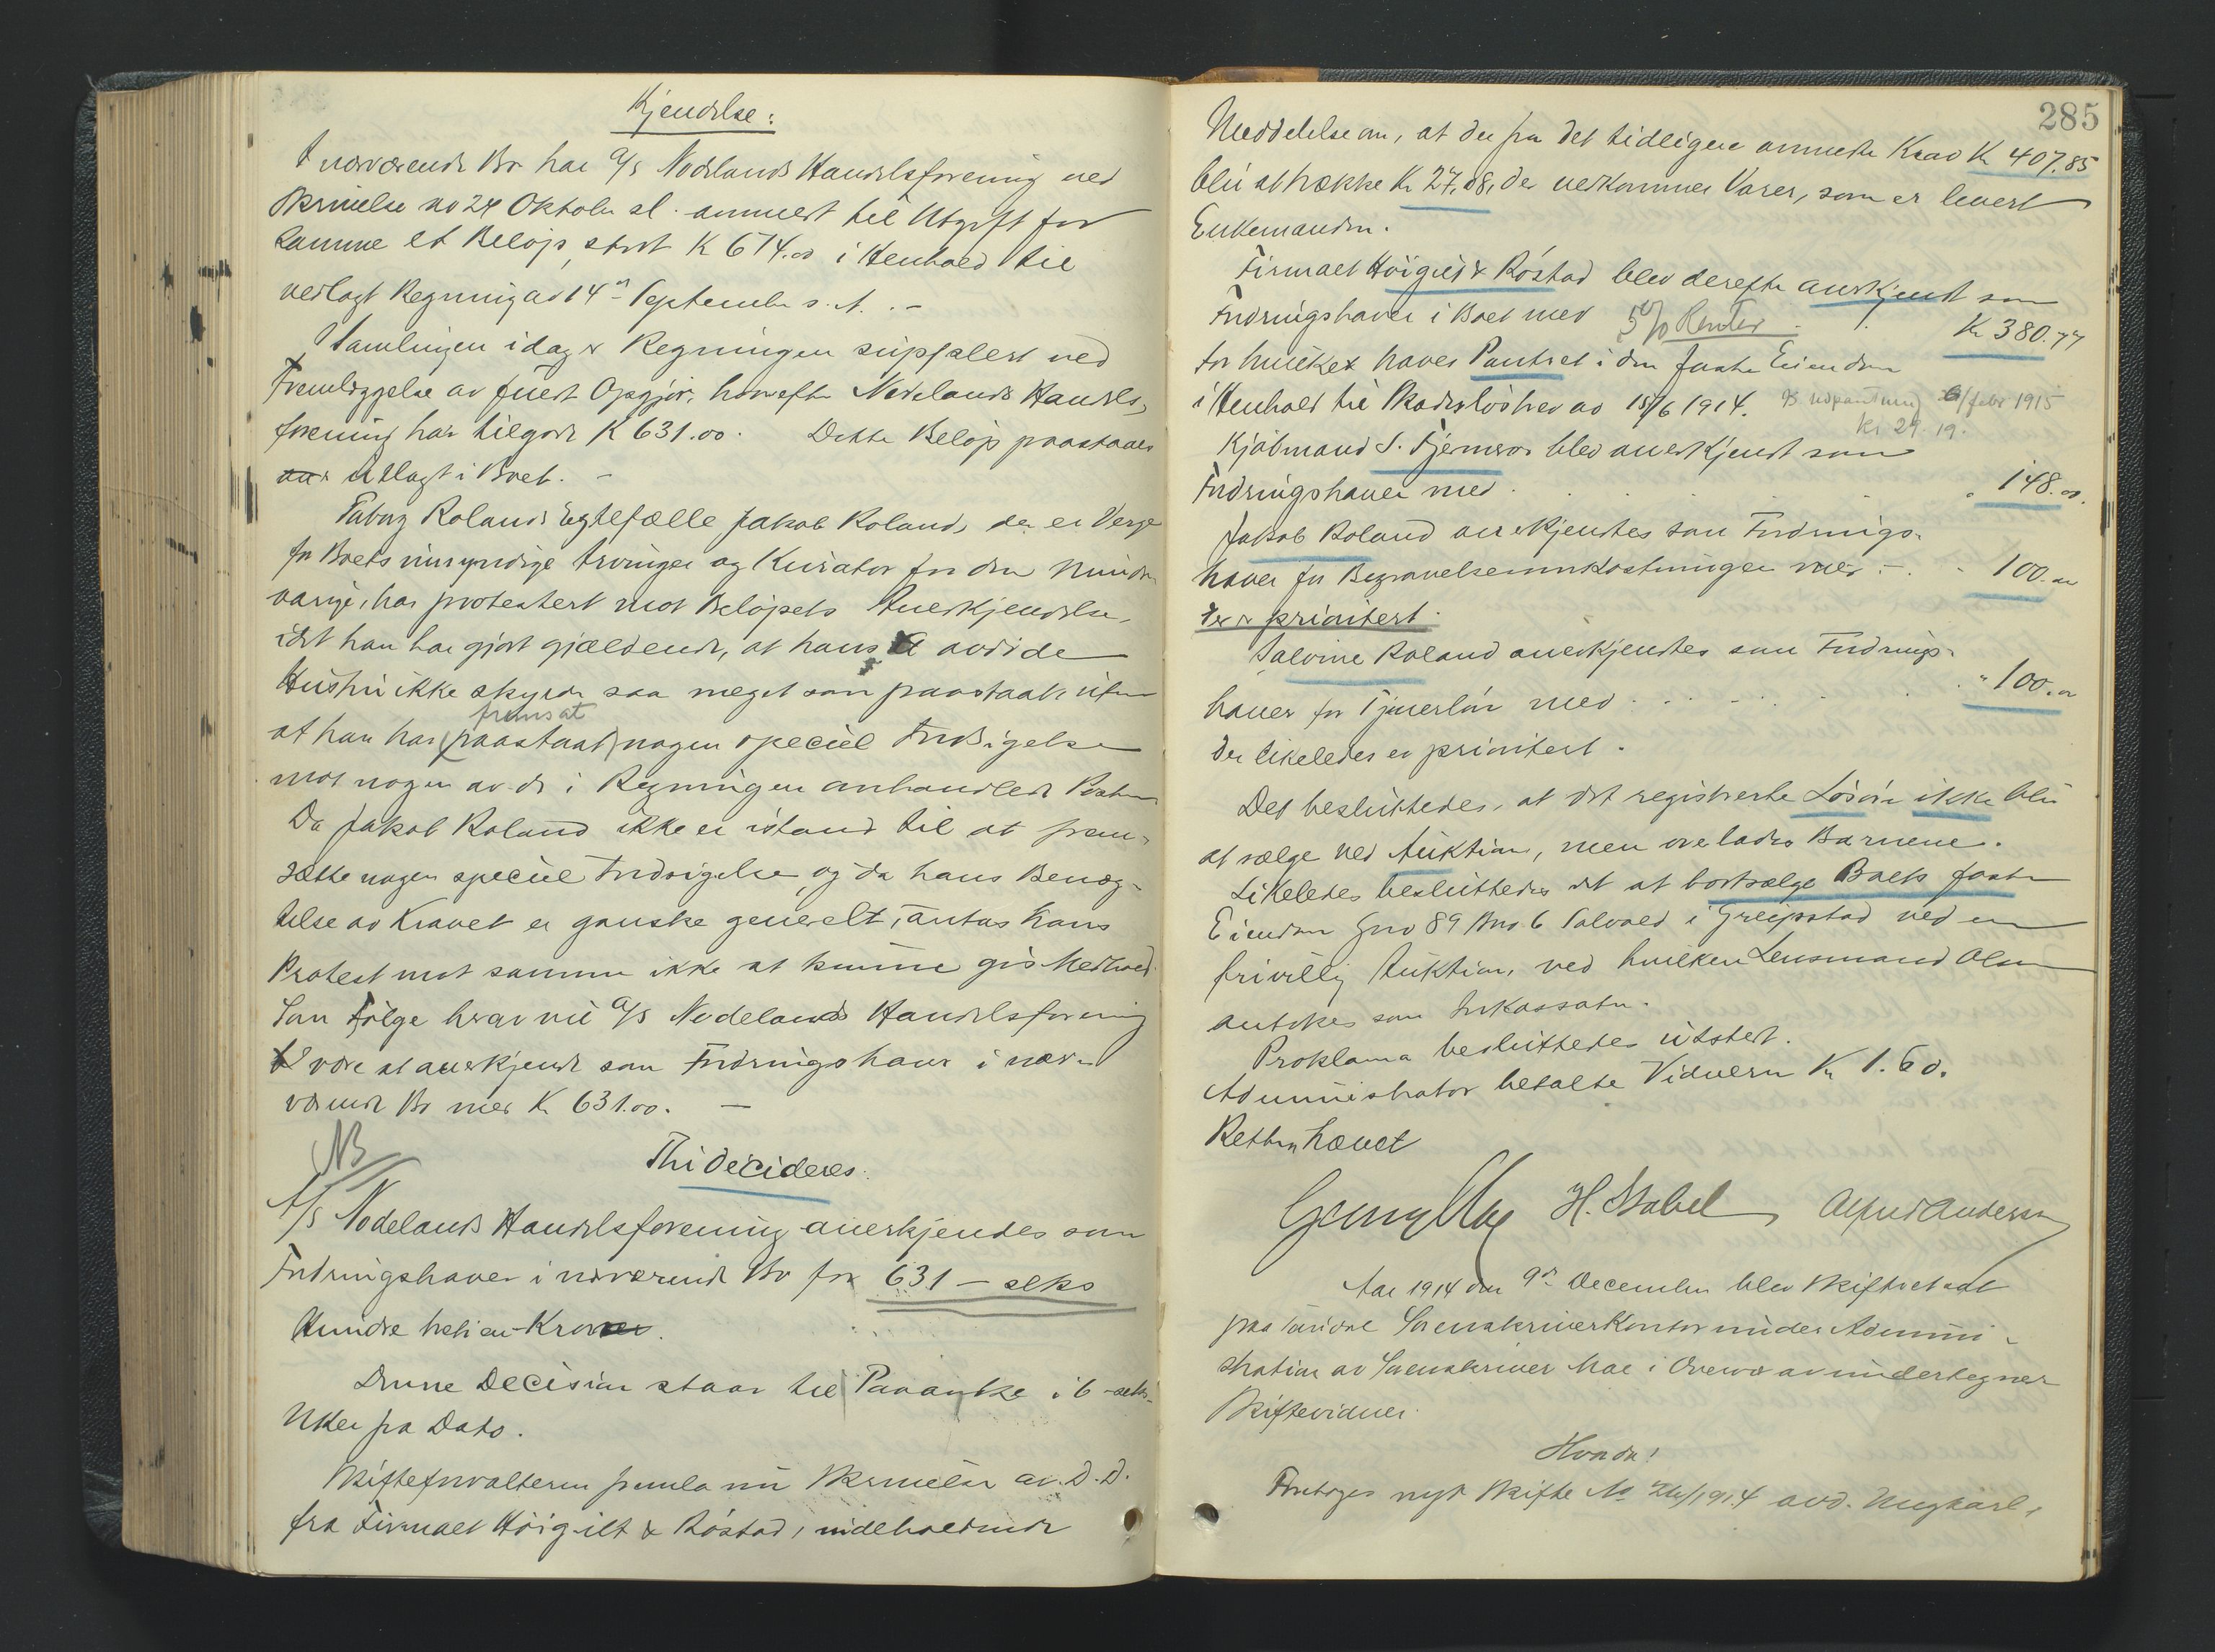 Kjendelse:
I nærværende Bo har A/S Nodelands Handelsforening ved
Skrivelse av 24 Oktober sl. anmeldt til Utgift for
samme et Beløp, stort K 674.00 i Henhold til
vedlagt Regning av 14de September s. A. -
I Samlingen idag er Regningen supplert ved
Fremlæggelse av ført Opgjør, hvorefter Nodelands Handels-
forening har tilgode K 631.00. Dette Beløp paastaaes
utlagt i Boet. -
Roland's Egtefælle Jakob Roland, der er Verge
for Boets umyndige Arvinger og Kurator for den Mindre-
aarige, har protestert mot Beløpets Anerkjendelse,
idet han har gjort gjældende, at hans avdøde
Hustru ikke skyldte saa meget som paastaat, uten
at han har (paastaat) fremsat nogen speciel Indsigelse
mot nogen av de i Regningen omhandlede Poster
Da Jakob Roland ikke er istand til at frem-
sætte nogen speciel Indsigelse, og da hans Benæg-
telse av Kravet er ganske generelt, antas hans
Protest mot samme ikke at kunne gis Medhold.
Som Følge herav vil A/S Nodelands Handelsforening
være at anerkjende som Fordringshaver i nær-
værende Bo med K. 631.00. -
NB
Thi decideres:
A/S Nodelands Handelsforening anerkjendes som
Fordringshaver i nærværende Bo for 631 - seks
Hundre tretien - Kroner.
Denne Decision staar til Paaanke i 6 - seks -
Uker fra Dato.
Skifteforvalteren fremla nu Skrivelse av D. D.
fra Firmaet Høigilt & Røstad, indeholdende
285
Meddelelse om, at der fra det tidligere anmeldte Krav Kr 407.85
blir at trække Kr 27,08, der vedkommer Varer, som er levert
Enkemanden.
Firmaet Høigilt & Røstad blev derefter anerkjendt som
Fordringshaver i Boet med 5% Renter . . Kr 380.77
for hvilket haves Pantret i den faste Eiendom
i Henhold til Skadesløsbrev av 15/6 1914. & utpantning 6/febr 1915
kr 29.19.
Kjøbmand S. Tjernsvos blev anerkjendt som
Fordringshaver med . . . . . " 148.00.
Jakob Roland anerkjendtes som Fordrings-
haver for Begravelsesomkostninger med - . " 100.00
der er prioritert.
Salvine Roland anerkjendtes som Fordrings-
haver for Tjenerløn med . . . . . " 100.00
der likeledes er prioritert.
Det besluttedes, at det registrerte Løsøre ikke blir
at sælge ved Auktion, men overlades Barnene.
Likeledes besluttedes det at bortsælge Boets faste
Eiendom Gno 89 Bno 6 i Greipstad ved en
frivillig Auktion, ved hvilken Lensmand Olsen
antokes som Inkassator.
Proklama besluttedes utstedt.
Administrator betalte Vidnerne Kr 1.60.
Retten hævet
H. Stabel Alfred Andersen
Aar 1914 den 9de December blev Skifteret sat
paa Torridal Sorenskriverkontor under Admini-
stration av Sorenskriver Moe i Overvær av undertegnede
Skiftevidner.
Hvorda!
Foretoges nyt Skifte No 26/1914 avd. Ungkarl,